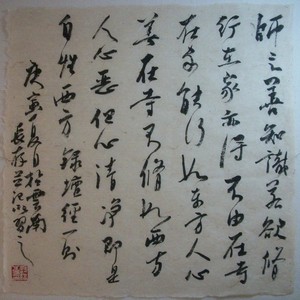 師言善知識若欲修
行在家亦得不由在寺
在家能行如東方人心
善在寺不修如西方
人心惡但心清淨即是
自性西方 錄壇經一則
庚寅夏月於雲南